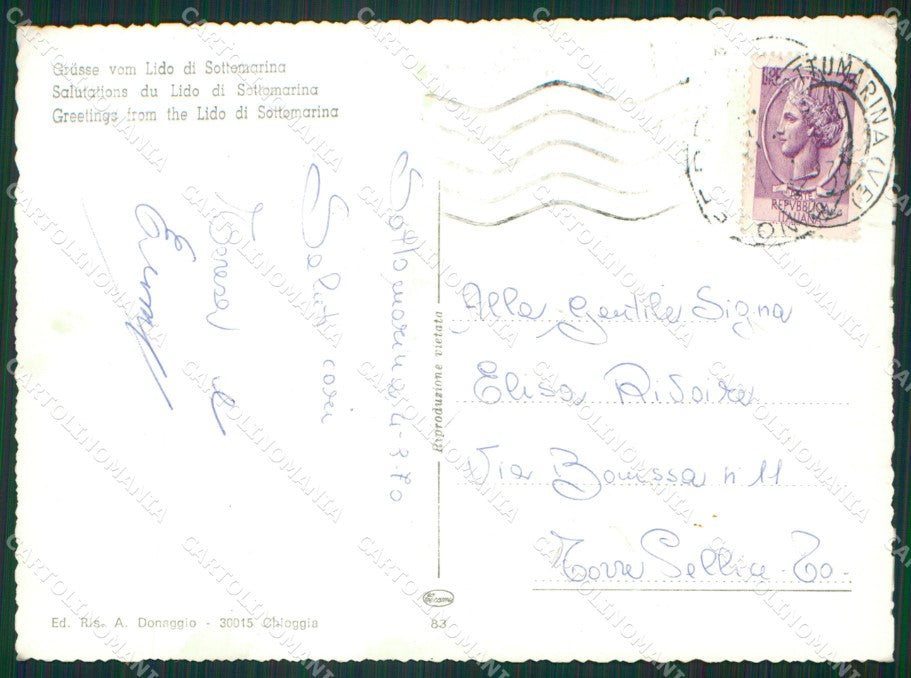 Grüsse vom Lido di Sottomarina
Salutations du Lido di Sottomarina
Greetings from the Lido di Sottomarina
Sottomarina 4-9-70
Saluti cari
Teresa e
Alla Gentile Signa
Elisa Rivoire
Via Bouissa n 11
Torre Pellice - To-
Riproduzione vietata
LIRE
POSTE
REPVBBLICA
ITALIANA
SOTTOMARINA (VE)
Ed. Ris. A. Donaggio - 30015 Chioggia
83
CARTOLINOMANIA